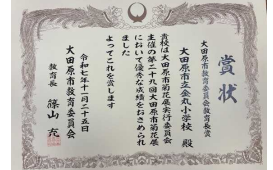 賞状
大田原市教育委員会教育長賞
大田原市立金丸小学校 殿
貴校は大田原市菊花展実行委員会
主催の第二十九回大田原市菊花展
において優秀な成績をおさめられ
ました
よってこれを賞します
令和七年十一月二十五日
大田原市教育委員会
教育長 篠山 充